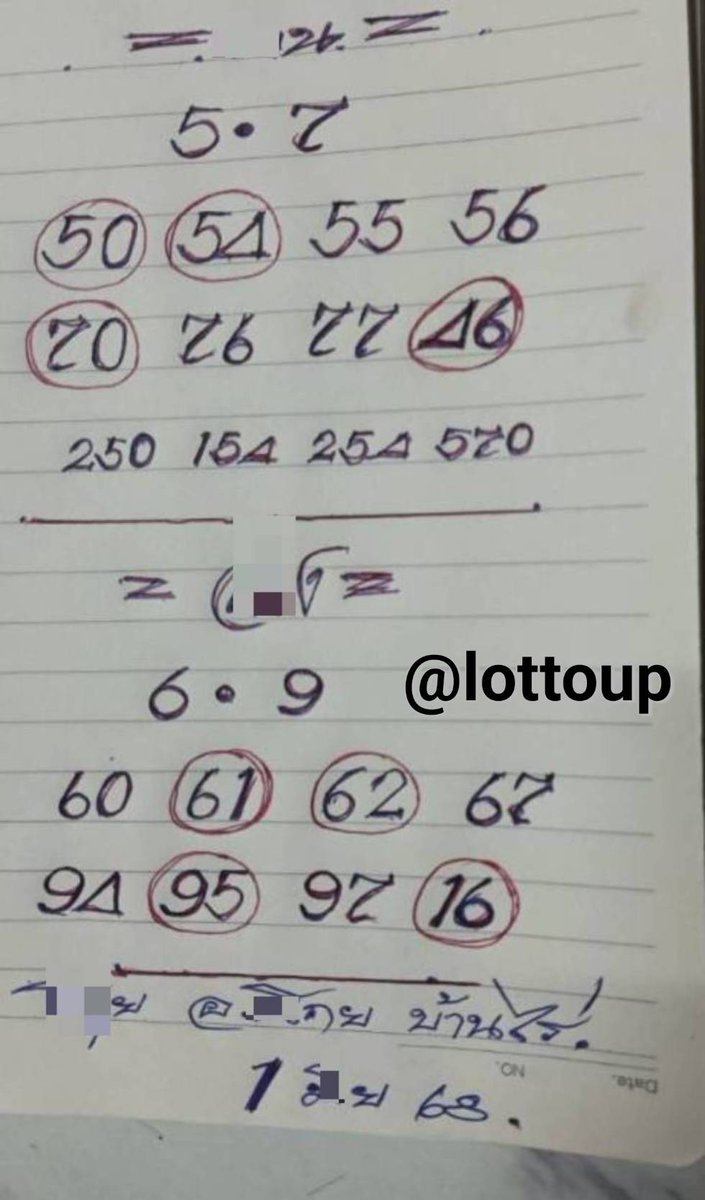 5 • 7
50 54 55 56
70 76 77 46
250 154 254 570
= =
6 • 9
@lottoup
60 61 62 67
94 95 97 16
บ้านไร่.
NO.
Date.
1 68.